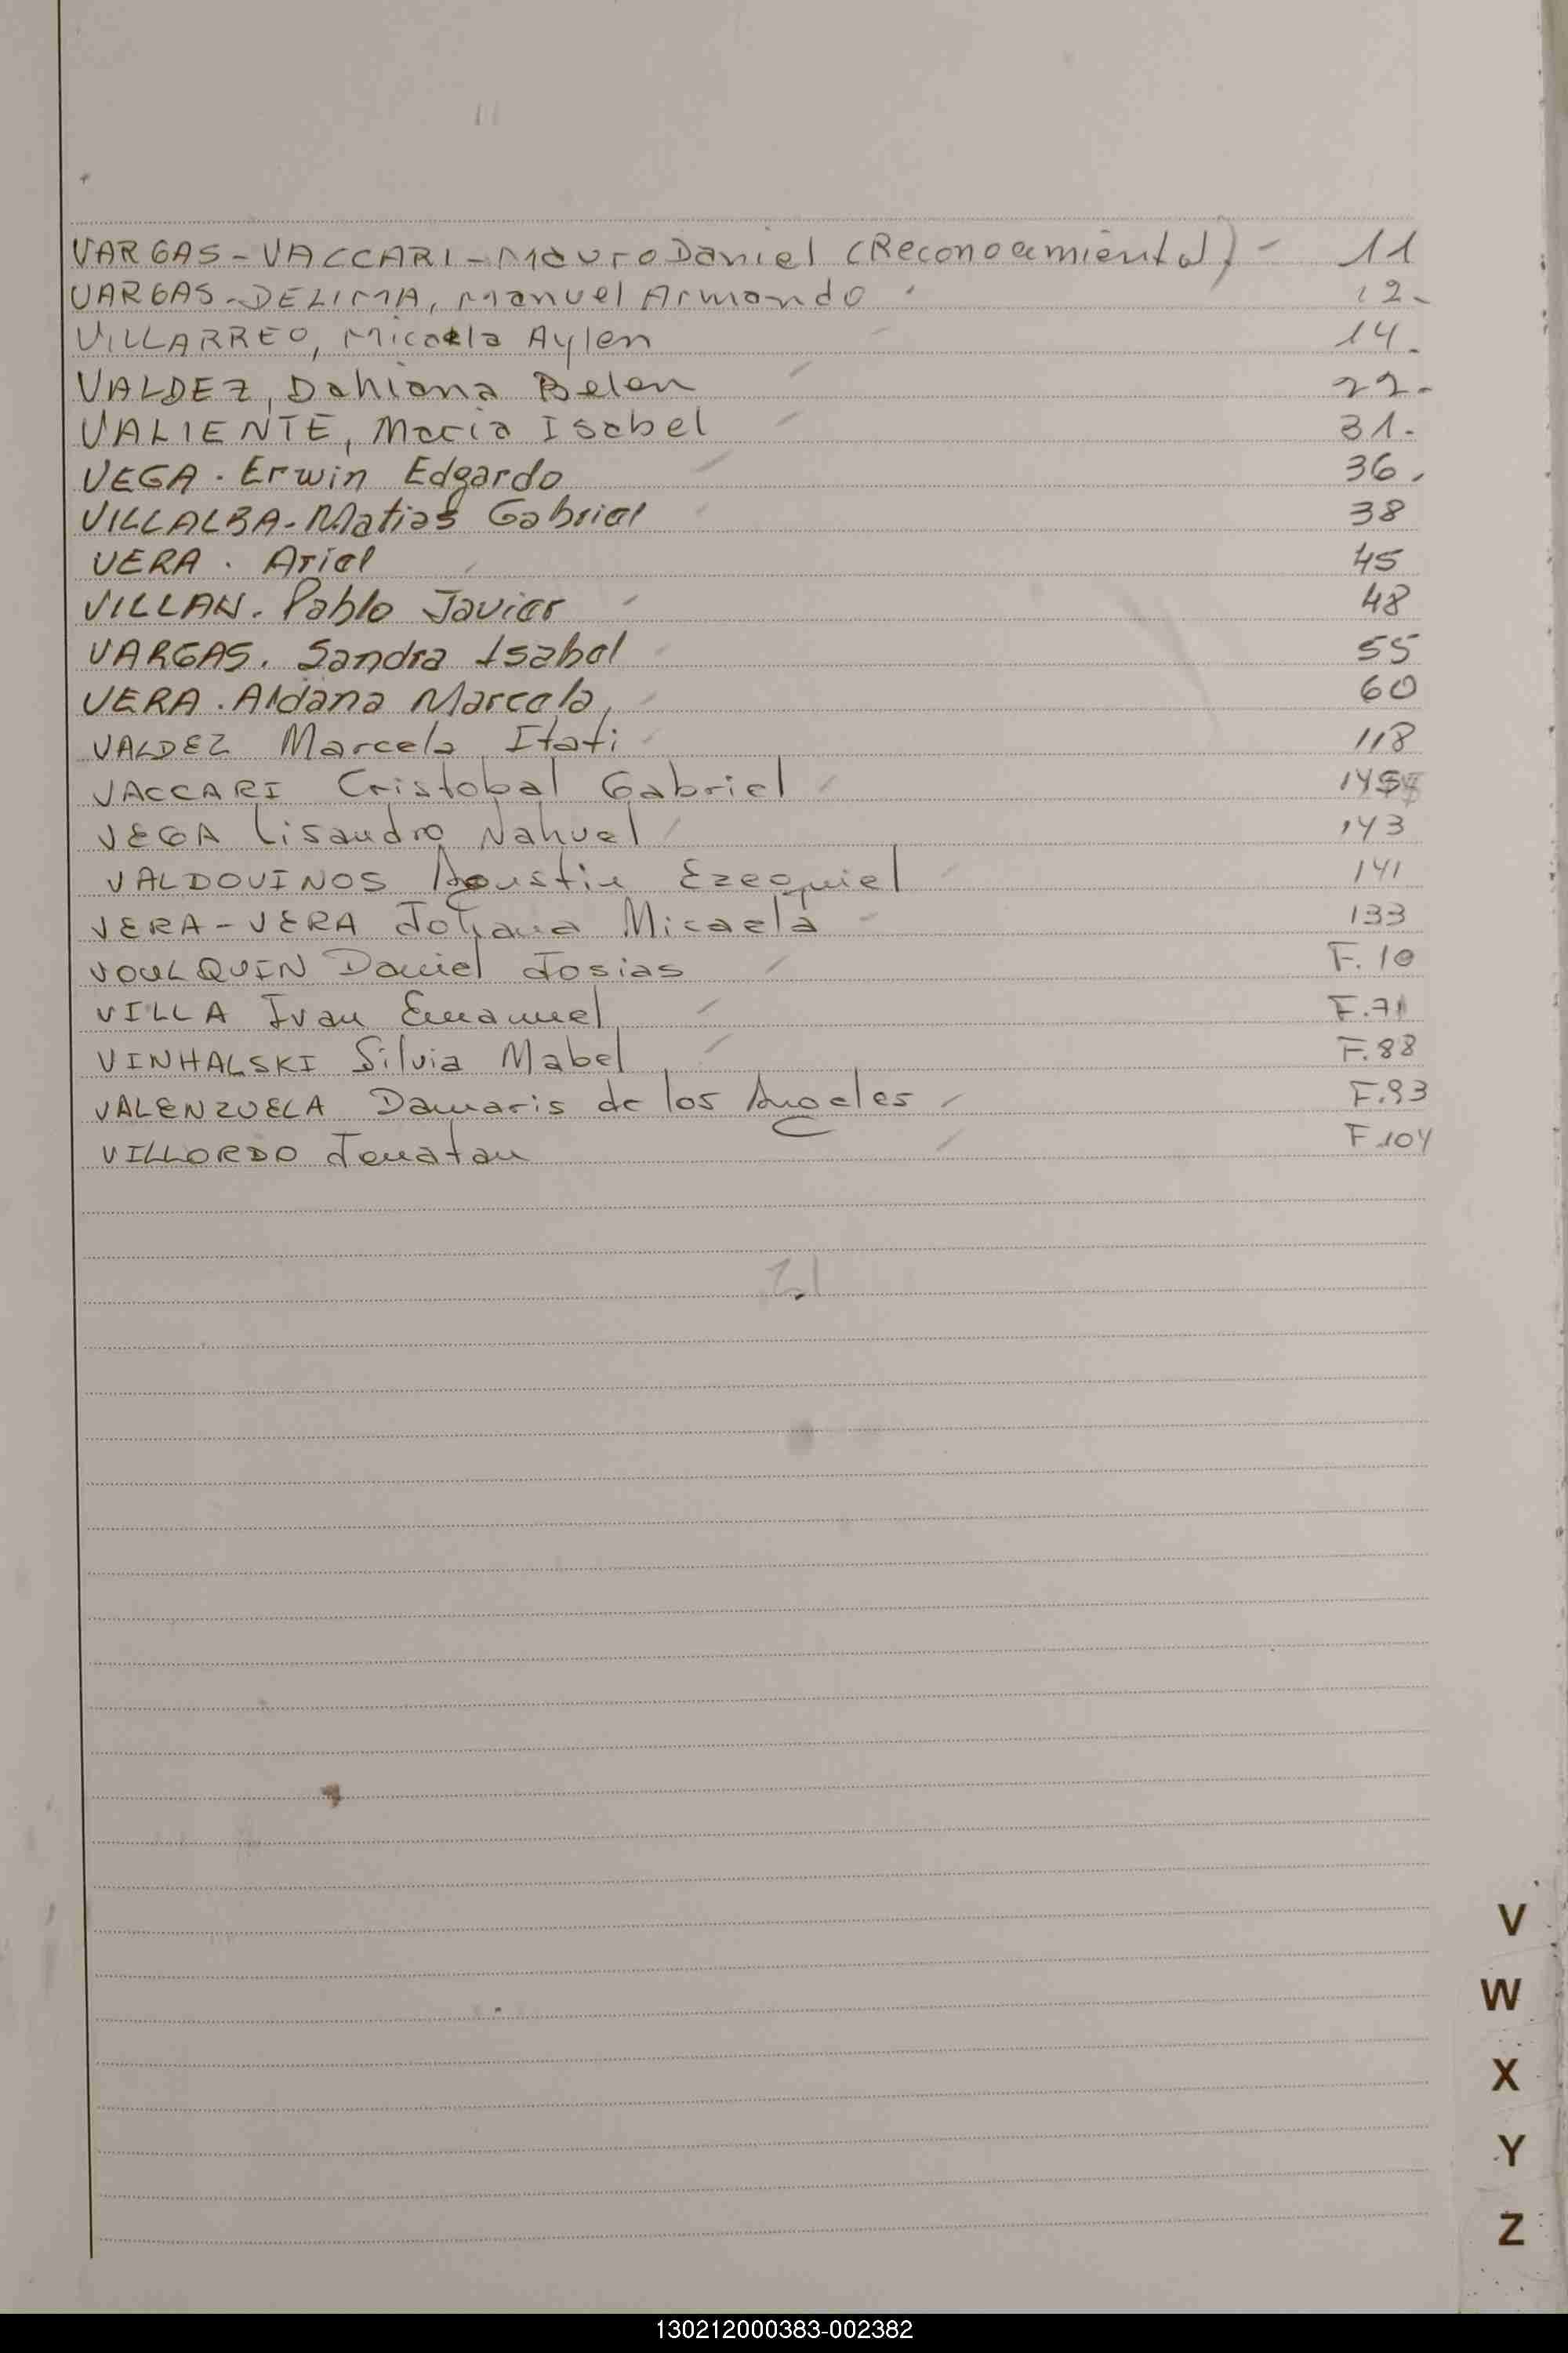 VARGAS-VACCARI-Mauro Daniel (Reconocimiento) - 11
VARGAS-DELIMA, Manuel Armando 12.
VILLARREO, Micaela Aylen 14.
VALDEZ, Dahiana Belen 22.
VALIENTE, Maria Isabel 31.
VEGA. Erwin Edgardo 36.
VILLALBA-Matias Gabriel 38
VERA. Ariel 45
VILLAN. Pablo Javier 48
VARGAS. Sandra Isabel 55
VERA. Aldana Marcela, 60
VALDEZ Marcela Itati 118
VACCARI Cristobal Gabriel
VEGA Lisandro Nahuel 143
VALDOVINOS Agustin Ezequiel 141
VERA-VERA Micaela 133
VOULQUIN Daniel Josias F.10
VILLA Ivan Emanuel F.71
VINHALSKI Silvia Mabel F.88
VALENZUELA Damaris de los Angeles F.93
VILLORDO Jonatan F.104
21
V
W
X
Y
Z
130212000383-002382